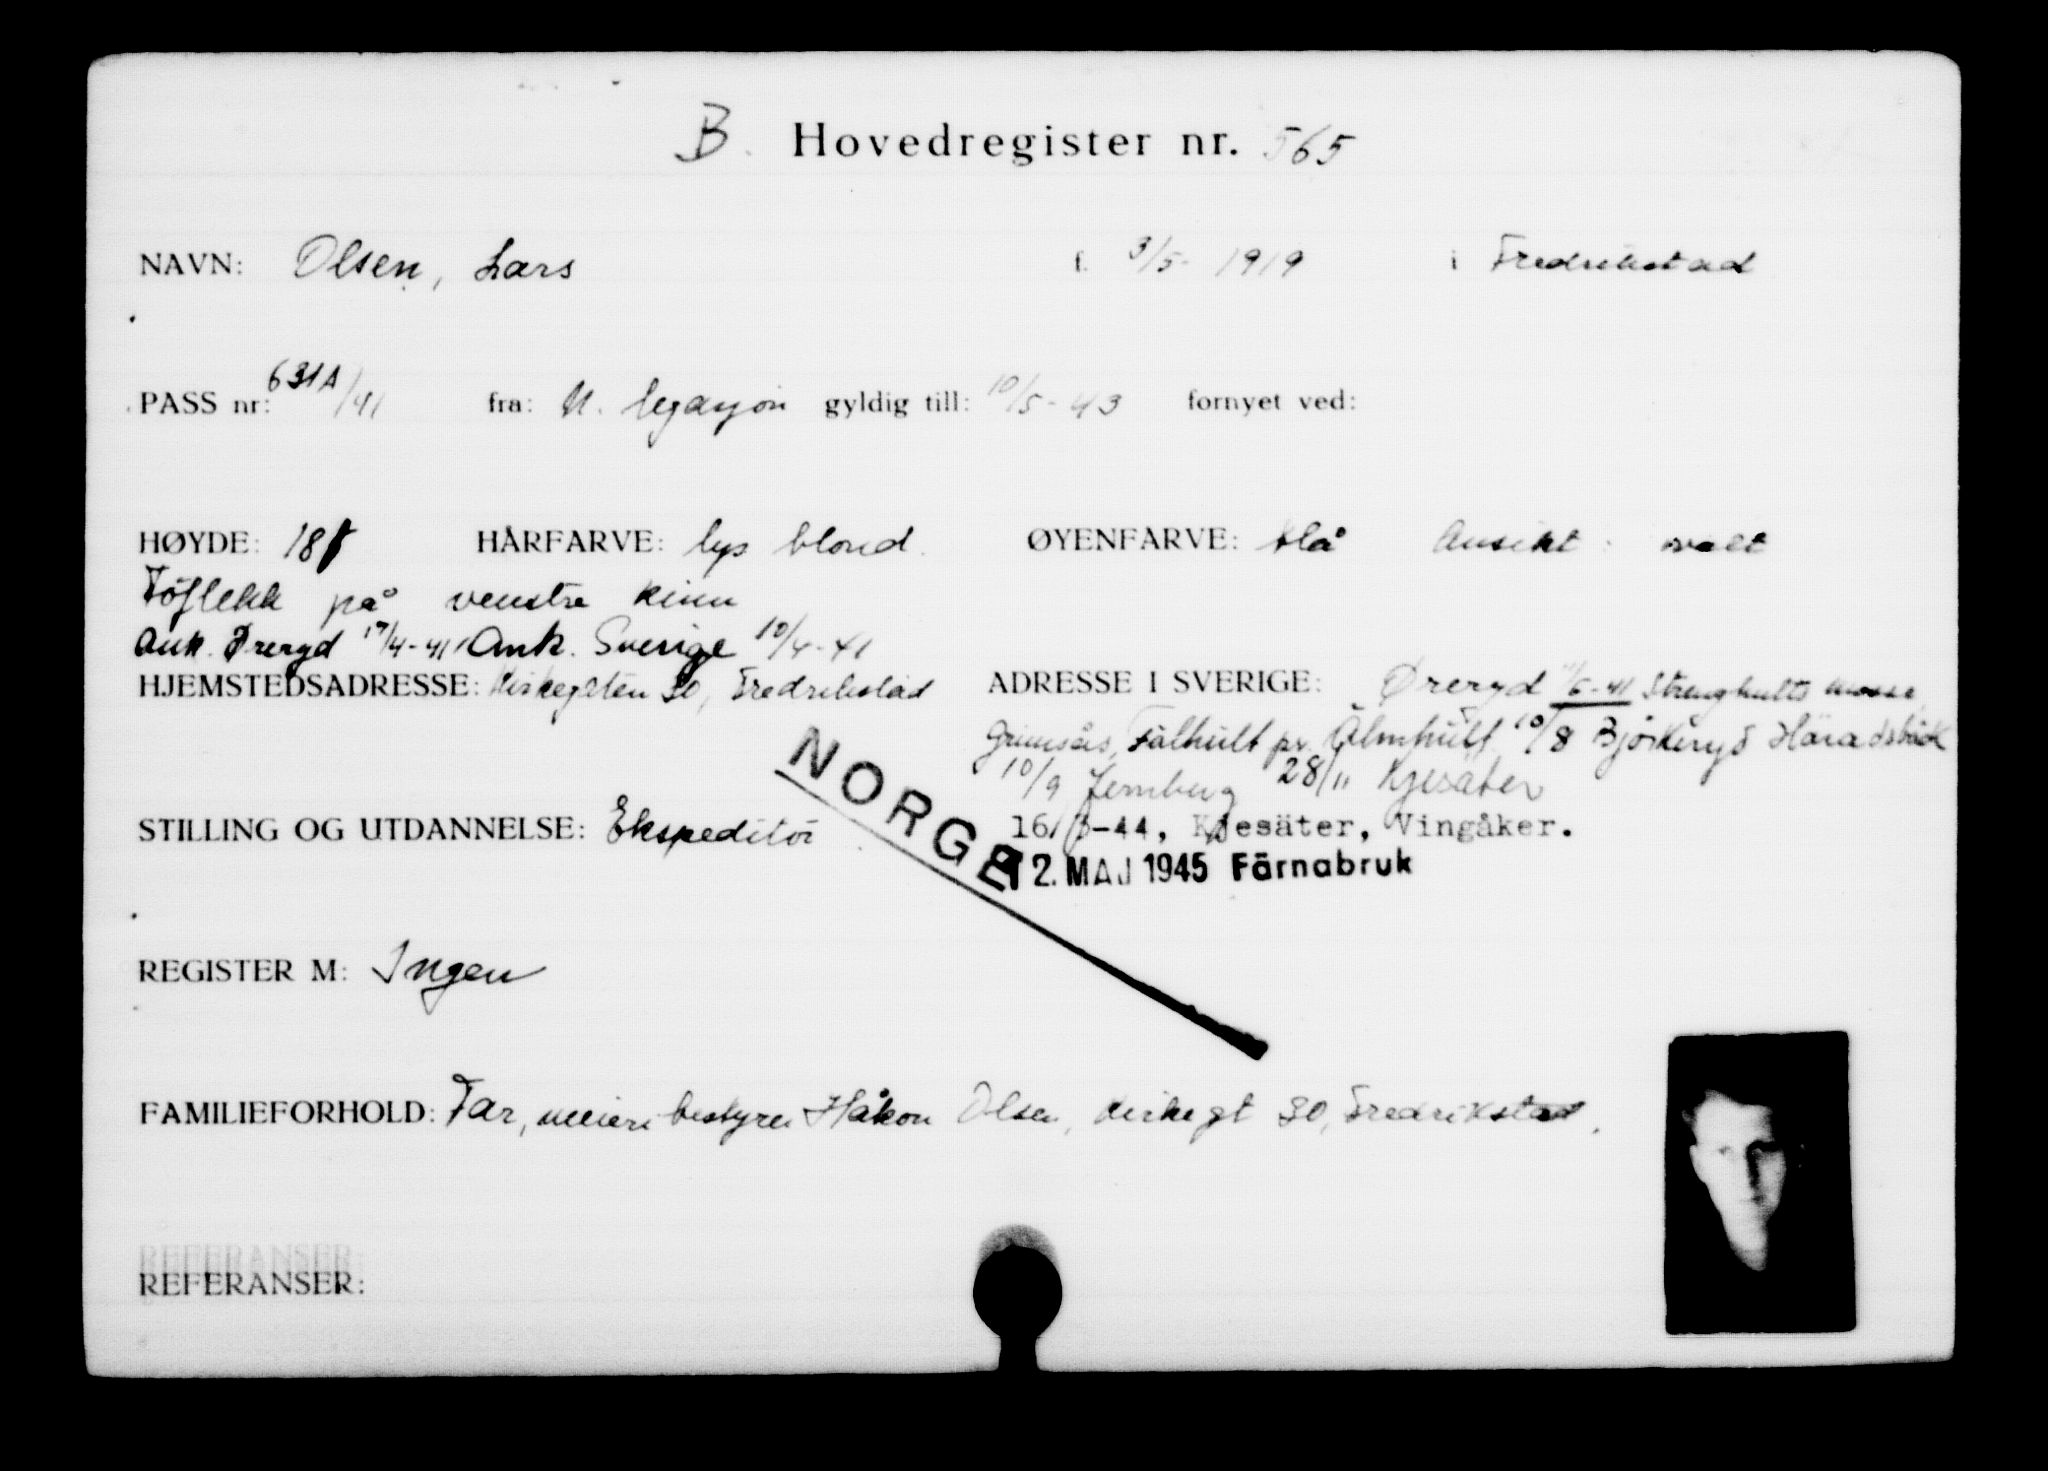 B. Hovedregister nr. 565
NAVN: Olsen, Lars f. 3/5- 1919 i Fredrikstad
PASS nr: 631A/41 fra: N. legasjon gyldig till: 10/5-43 fornyet ved:
HØYDE: 18 HÅRFARVE: lys blond. ØYENFARVE: blå Ansikt: ovalt
Föflekk på venstre kinn
Ank. Øreryd 17/4-41 Ank. Sverige 10/4-41
HJEMSTEDSADRESSE: Kirkegaten 30, Fredrikstad ADRESSE I SVERIGE: Øreryd 11/6-41 Strenghults mosse,
Grimsås, Fälhult pr. Älmhult 10/8 Bjørkeryd Häradsbäck
10/9 Jernberg 28/11 Kjesäter
STILLING OG UTDANNELSE: Ekspeditör 16/ -44, Kjesäter, Vingåker.
NORGE 12. MAJ 1945 Färnabruk
REGISTER M: Ingen
FAMILIEFORHOLD: Far, meieribestyrer Håkon Olsen, Kirkegt 30, Fredrikstad.
REFERANSER:
REFERANSER: